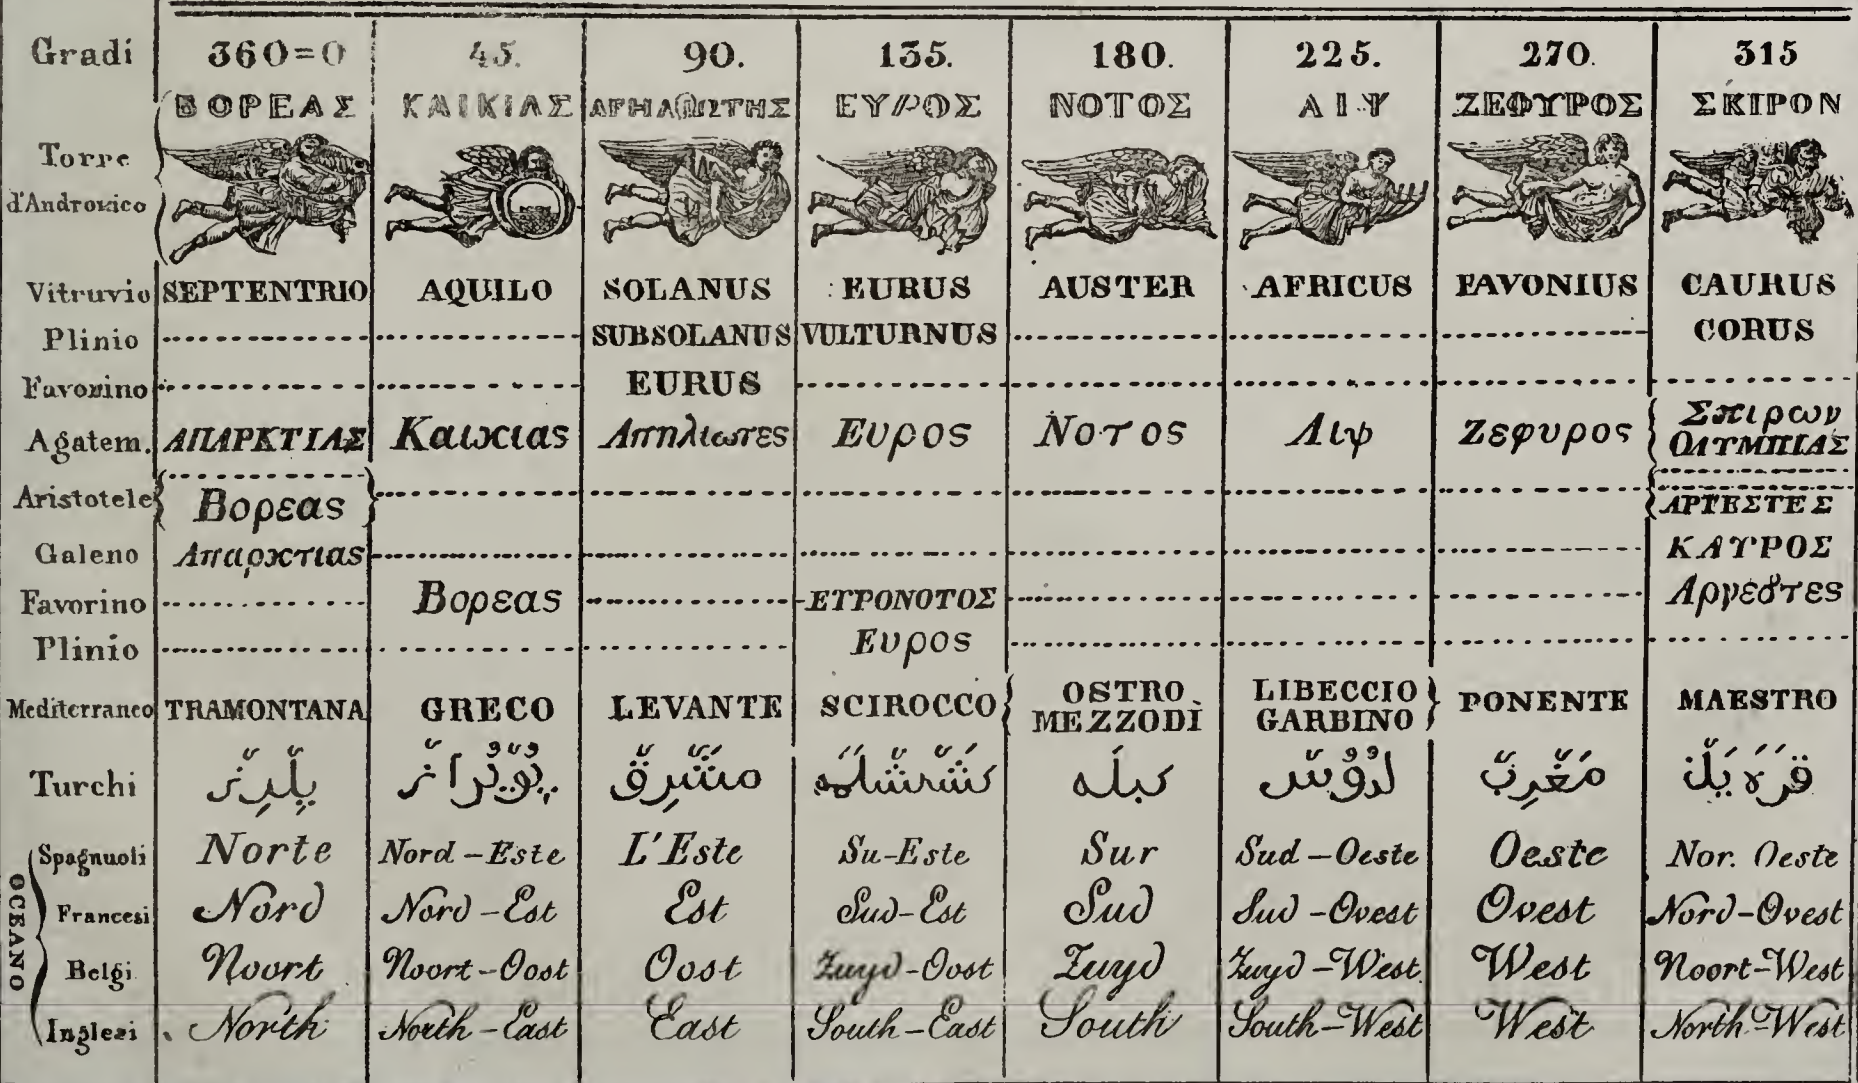 Gradi 360=0 45. 90. 135. 180. 225. 270. 315
ΒΟΡΕΑΣ ΚΑΙΚΙΑΣ ΑΡΗΛΙΩΤΗΣ ΕΥΡΟΣ ΝΟΤΟΣ ΛΙΨ ΖΕΦΥΡΟΣ ΣΚΙΡΟΝ
Torre
d'Andronico
Vitruvio SEPTENTRIO AQUILO SOLANUS EURUS AUSTER AFRICUS FAVONIUS CAURUS
Plinio SUBSOLANUS VULTURNUS CORUS
Favorino EURUS
Agatem. ΑΠΑΡΚΤΙΑΣ Καικιας Απηλιωτες Ευρος Νοτος Λιψ Ζεφυρος Σκιρων
ΟΛΥΜΠΙΑΣ
Aristotele Βορεας ΑΡΓΕΣΤΕΣ
Galeno Απαρκτιας ΚΑΥΡΟΣ
Favorino Βορεας ΕΥΡΟΝΟΤΟΣ Αργεστες
Plinio Ευρος
Mediterraneo TRAMONTANA GRECO LEVANTE SCIROCCO OSTRO MEZZODÌ LIBECCIO GARBINO PONENTE MAESTRO
Turchi مشرق كبله مغرب
OCEANO
Spagnuoli Norte Nord-Este L'Este Su-Este Sur Sud-Oeste Oeste Nor. Oeste
Francesi Nord Nord-Est Est Sud-Est Sud Sud-Ovest Ovest Nord-Ovest
Belgi Noort Noort-Oost Oost Zuyd-Oost Zuyd Zuyd-West West Noort-West
Inglesi North North-East East South-East South South-West West North-West